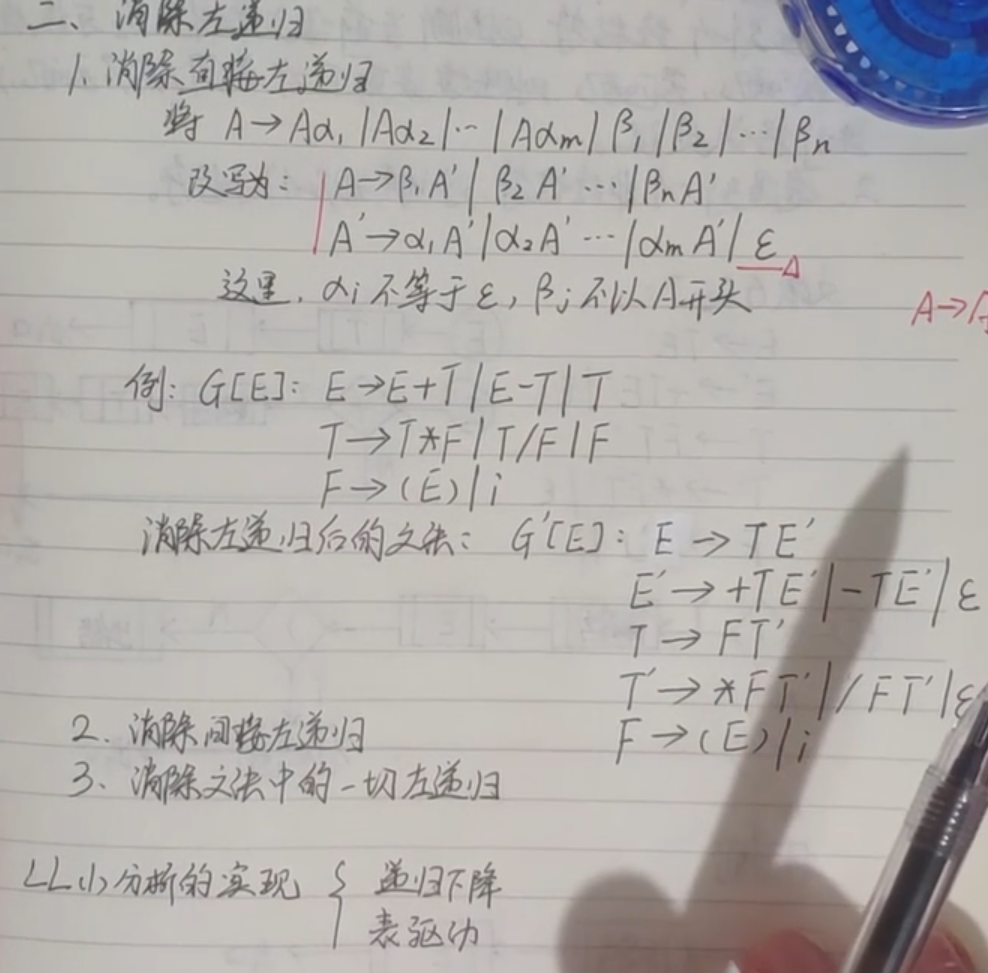 二、消除左递归
1、消除直接左递归
将 A→Aα₁|Aα₂|…|Aαm|β₁|β₂|…|βn
改写为： A→β₁A'|β₂A'…|βnA'
A'→α₁A'|α₂A'…|αmA'|ε
这里，αi不等于ε，βj不以A开头
A→A
例：G[E]： E→E+T|E-T|T
T→T*F|T/F|F
F→(E)|i
消除左递归后的文法： G'[E]： E→TE'
E'→+TE'|-TE'|ε
T→FT'
T'→*FT'|/FT'|ε
F→(E)|i
2、消除间接左递归
3、消除文法中的一切左递归
LL(1)分析的实现 { 递归下降
表驱动